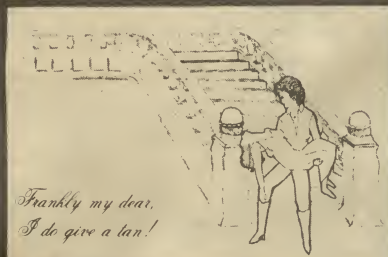 Frankly my dear,
I do give a tan!